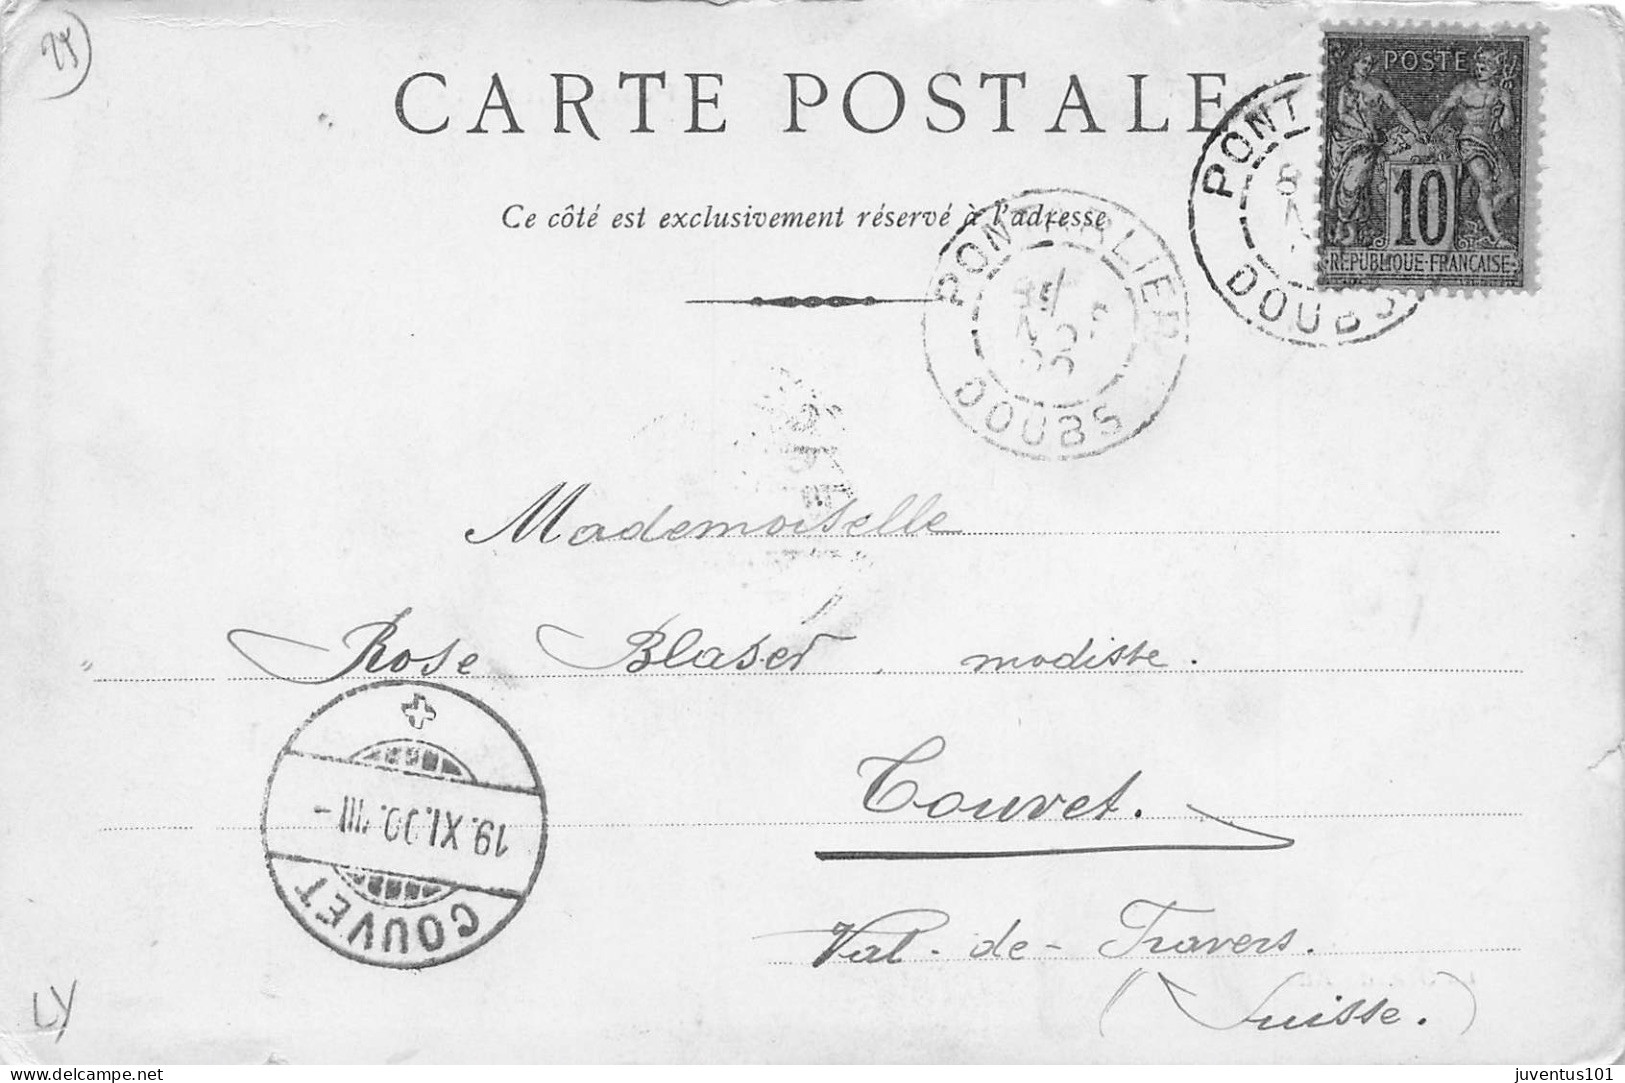 25
CARTE POSTALE
POSTE
10
RÉPUBLIQUE FRANÇAISE
PONT
8
DOUBS
Ce côté est exclusivement réservé à l'adresse
PONTARLIER
DOUBS
Mademoiselle
Rose Blaser, modiste.
Couvet.
19. XI. 00. VIII -
COUVET
Val-de-Travers.
(Suisse.)
LY
juventus101